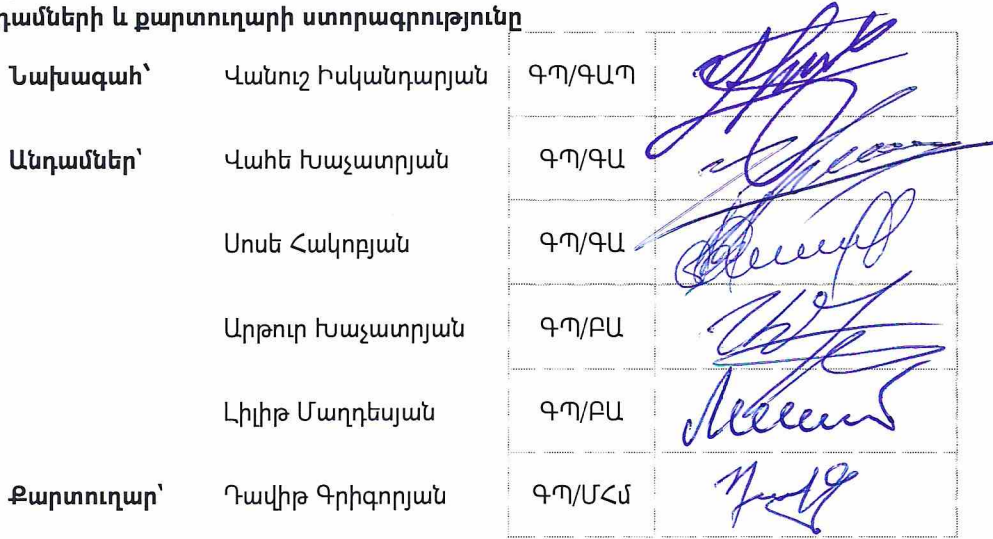 դամների և քարտուղարի ստորագրությունը
Նախագահ՝ Վանուշ Իսկանդարյան ԳՊ/ԳԱՊ
Անդամներ՝ Վահե Խաչատրյան ԳՊ/ԳԱ
Սոսե Հակոբյան ԳՊ/ԳԱ
Արթուր Խաչատրյան ԳՊ/ԲԱ
Լիլիթ Մաղդեսյան ԳՊ/ԲԱ
Քարտուղար՝ Դավիթ Գրիգորյան ԳՊ/ՄՀմ